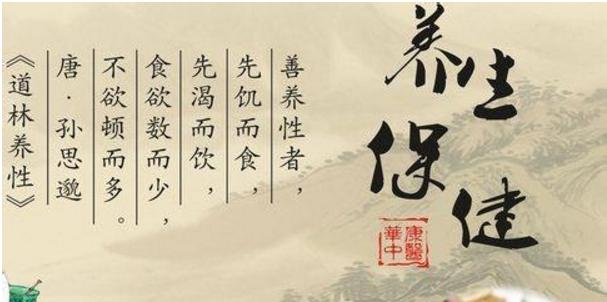 养生
保健
康醫
華中
善养性者，
先饥而食，
先渴而饮，
食欲数而少，
不欲顿而多。
唐·孙思邈
《道林养性》